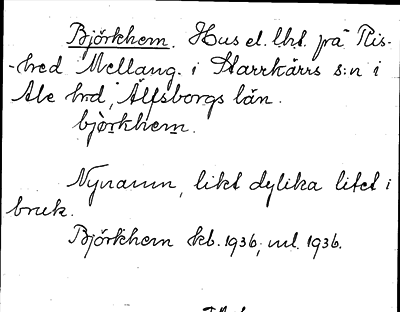 Björkhem. Hus el. lht. på Ris-
-hed Mellang. i Starrkärrs s:n i
Ale hrd, Älfsborgs län.
bjö̀rkhem.
Nynamn, likt dylika litet i
bruk.
Björkhem kb. 1936, ml. 1936.